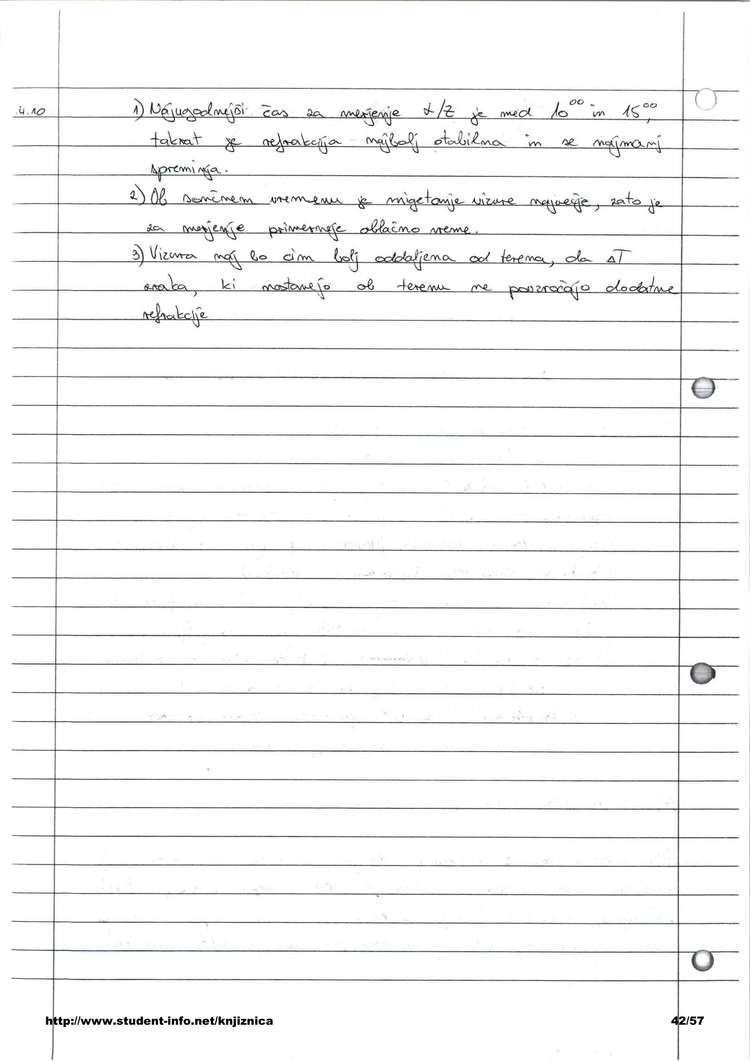 .4.10
1) Najugodnejši čas za merjenje α/Z je med 10⁰⁰ in 15⁰⁰,
takrat je refrakcija najbolj stabilna in se najmanj
spreminja.
2) Ob sončnem vremenu je migetanje vizure največje, zato je
za merjenje primerneje oblačno vreme.
3) Vizura naj bo čim bolj oddaljena od terena, da ΔT
zraka, ki nastanejo ob terenu ne povzročajo dodatne
refrakcije
http://www.student-info.net/knjiznica 42/57